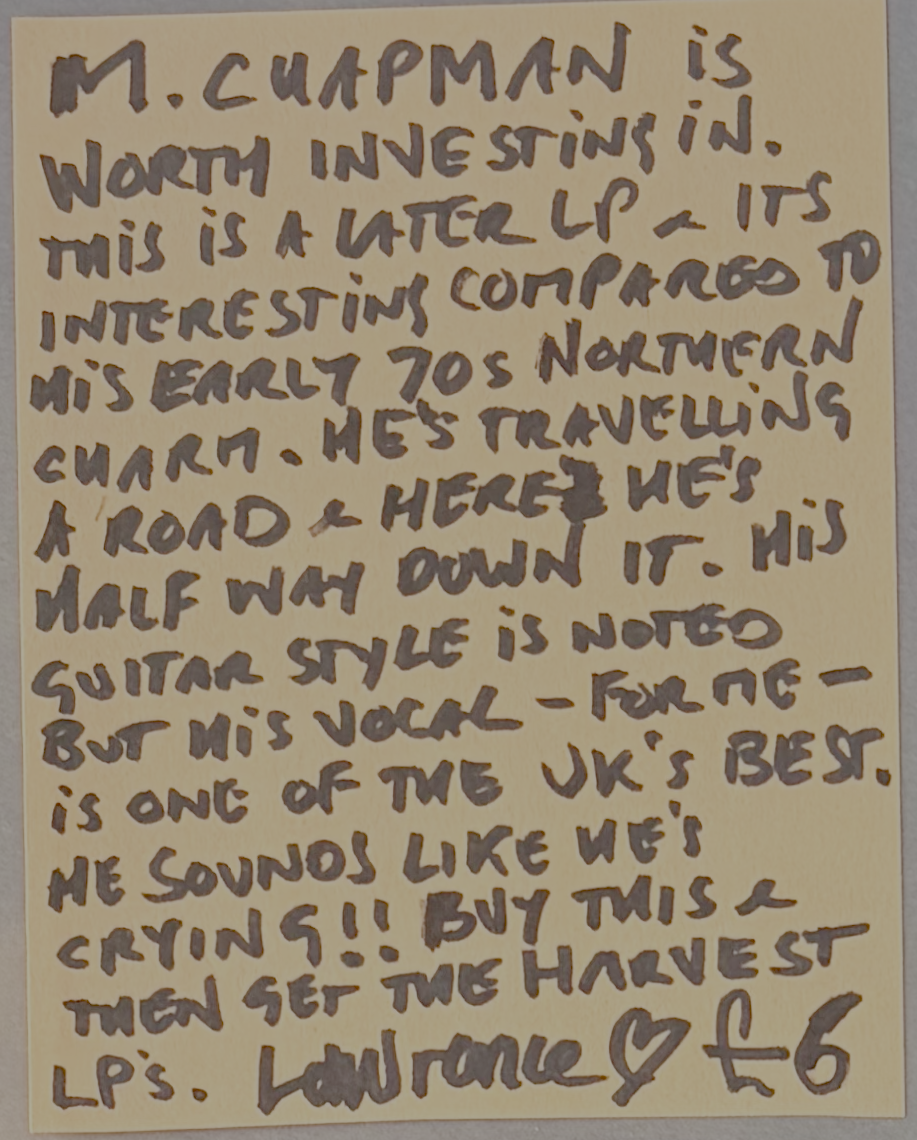 M. CHAPMAN iS
WORTH INVESTiNG iN.
THiS iS A LATER LP & ITS
INTERESTiNG COMPARED TO
HiS EARLY 70s NORTHERN
CHARM. HE'S TRAVELLiNG
A ROAD & HERE HE'S
HALF WAY DOWN IT. HiS
GUITAR STYLE iS NOTED
BUT HiS VOCAL - FOR ME -
iS ONE OF THE UK'S BEST.
HE SOUNDS LIKE HE'S
CRYING!! BUY THIS &
THEN GET THE HARVEST
LP's. Lawrence ♡ £6